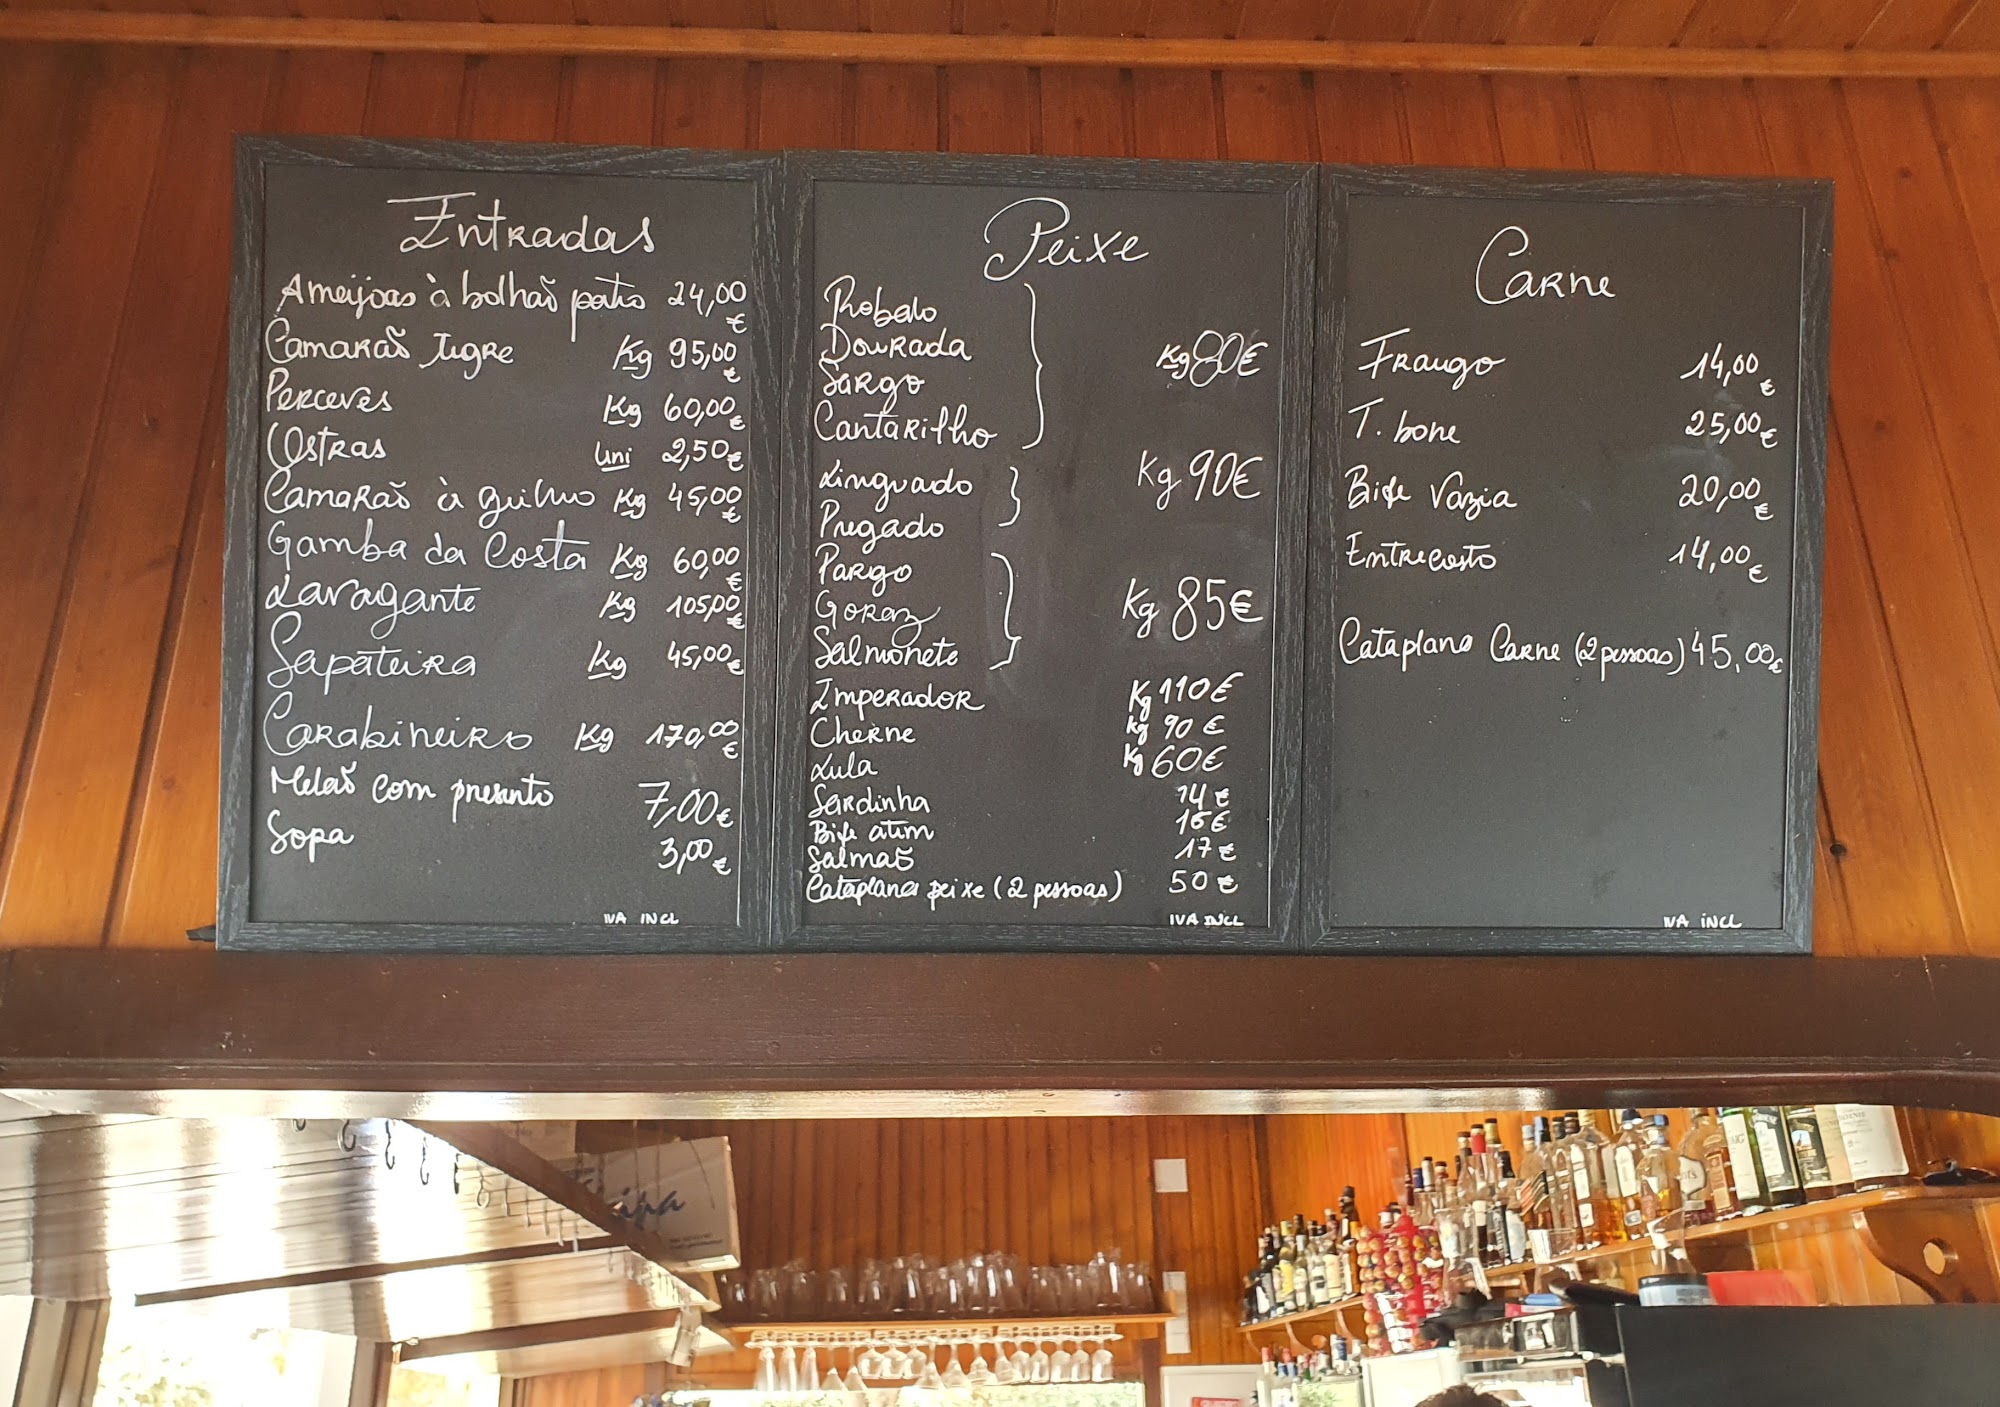 Entradas
Ameijoas à bolhão pato 24,00 €
Camarão Tigre Kg 95,00 €
Perceves Kg 60,00 €
Ostras uni 2,50 €
Camarão à guilho Kg 45,00 €
Gamba da Costa Kg 60,00 €
Lavagante Kg 105,00 €
Sapateira Kg 45,00 €
Carabineiro Kg 170,00 €
Melão com presunto 7,00 €
Sopa 3,00 €
IVA INCL
Peixe
Robalo
Dourada
Sargo
Cantarilho
Kg 80€
Linguado
Pregado
Kg 90€
Pargo
Goraz
Salmonete
Kg 85€
Imperador Kg 110€
Cherne Kg 90€
Lula Kg 60€
Sardinha 14€
Bife atum 16€
Salmão 17€
Cataplana peixe (2 pessoas) 50€
IVA INCL
Carne
Frango 14,00 €
T. bone 25,00 €
Bife Vazia 20,00 €
Entrecosto 14,00 €
Cataplana Carne (2 pessoas) 45,00€
IVA INCL